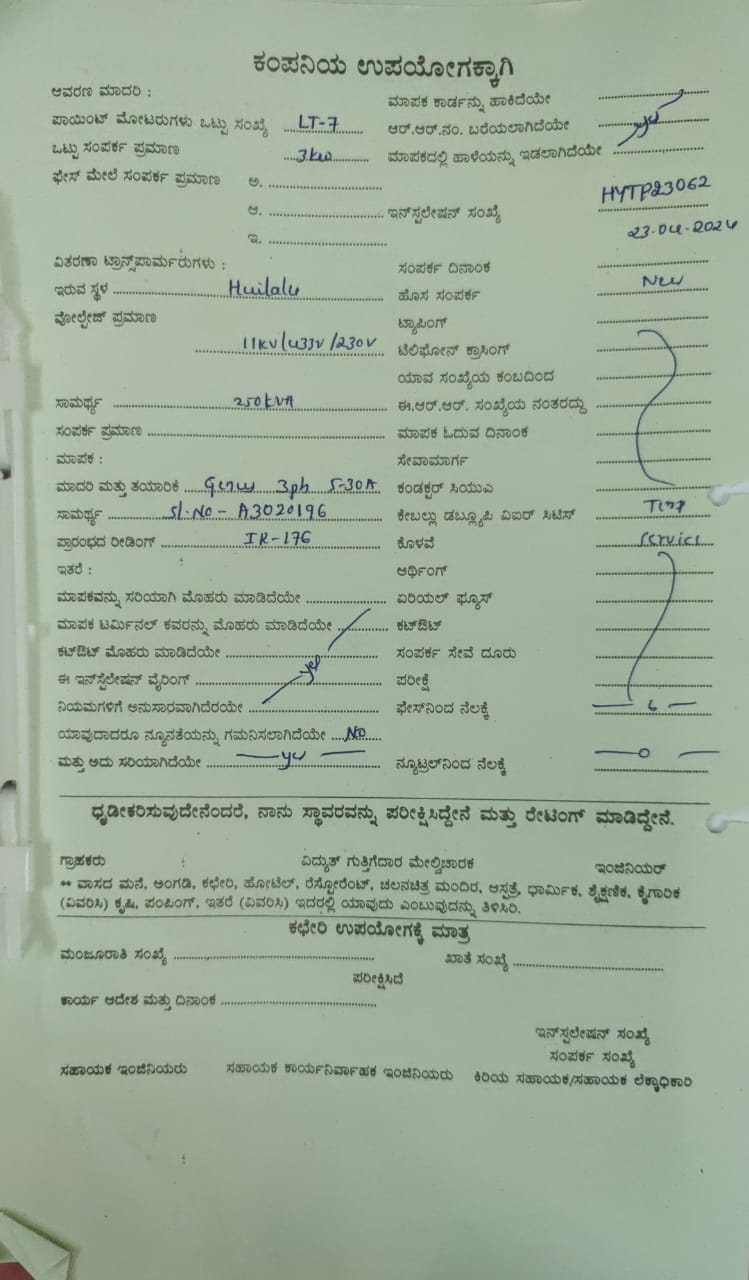 ಕಂಪನಿಯ ಉಪಯೋಗಕ್ಕಾಗಿ
ಆವರಣ ಮಾದರಿ :
ಮಾಪಕ ಕಾರ್ಡನ್ನು ಹಾಕಿದೆಯೇ
ಪಾಯಿಂಟ್ ಮೋಟರುಗಳು ಒಟ್ಟು ಸಂಖ್ಯೆ LT-7 ಆರ್.ಆರ್.ನಂ. ಬರೆಯಲಾಗಿದೆಯೇ yes
ಒಟ್ಟು ಸಂಪರ್ಕ ಪ್ರಮಾಣ 3kw ಮಾಪಕದಲ್ಲಿ ಹಾಳೆಯನ್ನು ಇಡಲಾಗಿದೆಯೇ
ಫೇಸ್ ಮೇಲೆ ಸಂಪರ್ಕ ಪ್ರಮಾಣ ಅ.
ಆ. ಇನ್‌ಸ್ಟಲೇಷನ್ ಸಂಖ್ಯೆ HYTP23062
ಇ. 23.04.2024
ವಿತರಣಾ ಟ್ರಾನ್ಸ್‌ಪಾರ್ಮರುಗಳು : ಸಂಪರ್ಕ ದಿನಾಂಕ
ಇರುವ ಸ್ಥಳ Huilalu ಹೊಸ ಸಂಪರ್ಕ New
ವೋಲ್ಟೇಜ್ ಪ್ರಮಾಣ ಟ್ಯಾಪಿಂಗ್
11kv/433v/230v ಟೆಲಿಫೋನ್ ಕ್ರಾಸಿಂಗ್
ಯಾವ ಸಂಖ್ಯೆಯ ಕಂಬದಿಂದ
ಸಾಮರ್ಥ್ಯ 250kVA ಈ.ಆರ್.ಆರ್. ಸಂಖ್ಯೆಯ ನಂತರದ್ದು
ಸಂಪರ್ಕ ಪ್ರಮಾಣ ಮಾಪಕ ಓದುವ ದಿನಾಂಕ
ಮಾಪಕ : ಸೇವಾಮಾರ್ಗ
ಮಾದರಿ ಮತ್ತು ತಯಾರಿಕೆ Genus 3ph 5-30A ಕಂಡಕ್ಟರ್ ಸಿಯುಎ
ಸಾಮರ್ಥ್ಯ Sl.No - A3020196 ಕೇಬಲ್ಲು ಡಬ್ಲ್ಯೂಪಿ ವಿಐರ್ ಸಿಟಿಸ್ Temp
ಪ್ರಾರಂಭದ ರೀಡಿಂಗ್ IR-176 ಕೊಳವೆ Service
ಇತರೆ : ಆರ್ಥಿಂಗ್
ಮಾಪಕವನ್ನು ಸರಿಯಾಗಿ ಮೊಹರು ಮಾಡಿದೆಯೇ ಏರಿಯಲ್ ಫ್ಯೂಸ್
ಮಾಪಕ ಟರ್ಮಿನಲ್ ಕವರನ್ನು ಮೊಹರು ಮಾಡಿದೆಯೇ ಕಟ್‌ಔಟ್
ಕಟ್‌ಔಟ್ ಮೊಹರು ಮಾಡಿದೆಯೇ ಸಂಪರ್ಕ ಸೇವೆ ದೂರು
ಈ ಇನ್‌ಸ್ಟೆಲೇಷನ್ ವೈರಿಂಗ್ yes ಪರೀಕ್ಷೆ
ನಿಯಮಗಳಿಗೆ ಅನುಸಾರವಾಗಿದೆರಯೇ ಫೇಸ್‌ನಿಂದ ನೆಲಕ್ಕೆ
ಯಾವುದಾದರೂ ನ್ಯೂನತೆಯನ್ನು ಗಮನಿಸಲಾಗಿದೆಯೇ No
ಮತ್ತು ಅದು ಸರಿಯಾಗಿದೆಯೇ yes ನ್ಯೂಟ್ರಲ್‌ನಿಂದ ನೆಲಕ್ಕೆ —0—
ಧೃಡೀಕರಿಸುವುದೇನೆಂದರೆ, ನಾನು ಸ್ಥಾವರವನ್ನು ಪರೀಕ್ಷಿಸಿದ್ದೇನೆ ಮತ್ತು ರೇಟಿಂಗ್ ಮಾಡಿದ್ದೇನೆ.
ಗ್ರಾಹಕರು ವಿದ್ಯುತ್ ಗುತ್ತಿಗೆದಾರ ಮೇಲ್ವಿಚಾರಕ ಇಂಜಿನಿಯರ್
** ವಾಸದ ಮನೆ, ಅಂಗಡಿ, ಕಛೇರಿ, ಹೋಟೆಲ್, ರೆಸ್ಟೋರೆಂಟ್, ಚಲನಚಿತ್ರ ಮಂದಿರ, ಆಸ್ಪತ್ರೆ, ಧಾರ್ಮಿಕ, ಶೈಕ್ಷಣಿಕ, ಕೈಗಾರಿಕ
(ವಿವರಿಸಿ) ಕೃಷಿ, ಪಂಪಿಂಗ್, ಇತರೆ (ವಿವರಿಸಿ) ಇದರಲ್ಲಿ ಯಾವುದು ಎಂಬುವುದನ್ನು ತಿಳಿಸಿರಿ.
ಕಛೇರಿ ಉಪಯೋಗಕ್ಕೆ ಮಾತ್ರ
ಮಂಜೂರಾತಿ ಸಂಖ್ಯೆ ಖಾತೆ ಸಂಖ್ಯೆ
ಪರೀಕ್ಷಿಸಿದೆ
ಕಾರ್ಯ ಆದೇಶ ಮತ್ತು ದಿನಾಂಕ
ಇನ್‌ಸ್ಟಲೇಷನ್ ಸಂಖ್ಯೆ
ಸಂಪರ್ಕ ಸಂಖ್ಯೆ
ಸಹಾಯಕ ಇಂಜಿನಿಯರು ಸಹಾಯಕ ಕಾರ್ಯನಿರ್ವಾಹಕ ಇಂಜಿನಿಯರು ಕಿರಿಯ ಸಹಾಯಕ/ಸಹಾಯಕ ಲೆಕ್ಕಾಧಿಕಾರಿ